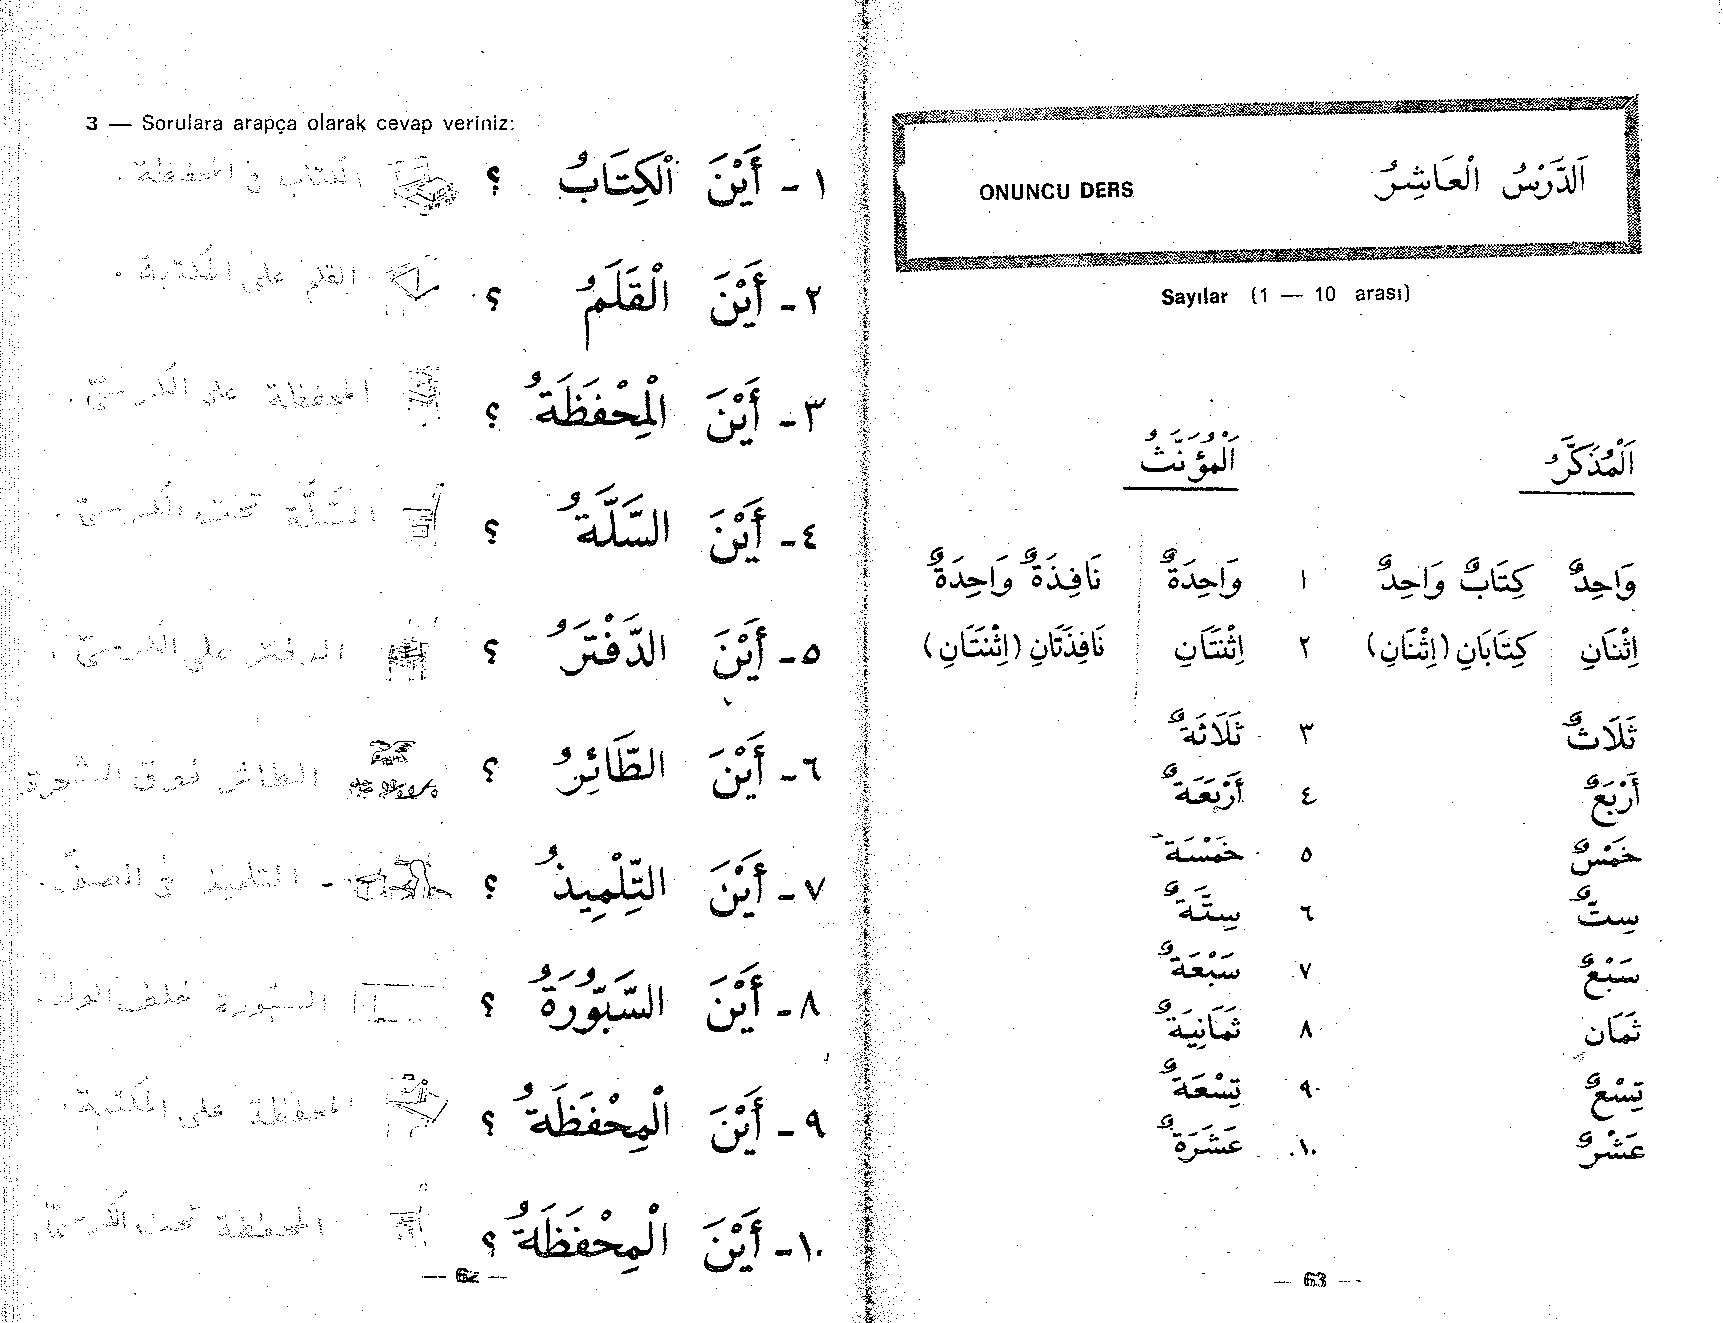 3 — Sorulara arapça olarak cevap veriniz:
١ - أَيْنَ اَلْكِتَابُ ؟ الكتاب في المحفظة .
٢ - أَيْنَ الْقَلَمُ ؟ القلم على المكتبة .
٣ - أَيْنَ الْمِحْفَظَةُ ؟ المحفظة على الكرسيّ .
٤ - أَيْنَ السَّلَّةُ ؟ السَّلَّة تحت الكرسيّ .
٥ - أَيْنَ الدَّفْتَرُ ؟ الدفتر على الكرسيّ .
٦ - أَيْنَ الطَّائِرُ ؟ الطائر فوق الشجرة
٧ - أَيْنَ التِّلْمِيذُ ؟ التلميذ في الصفّ .
٨ - أَيْنَ السَّبُّورَةُ ؟ السبّورة خلف الولد .
٩ - أَيْنَ الْمِحْفَظَةُ ؟ المحفظة على المكتبة .
١٠ - أَيْنَ الْمِحْفَظَةُ ؟ المحفظة تحت الكرسيّ .
— 62 —
ONUNCU DERS اَلدَّرْسُ الْعَاشِرُ
Sayılar (1 — 10 arası)
اَلْمُذَكَّرُ اَلْمُؤَنَّثُ
وَاحِدٌ كِتَابٌ وَاحِدٌ ١ وَاحِدَةٌ نَافِذَةٌ وَاحِدَةٌ
اِثْنَانِ كِتَابَانِ (اِثْنَانِ) ٢ اِثْنَتَانِ نَافِذَتَانِ (اِثْنَتَانِ)
ثَلَاثٌ ٣ ثَلَاثَةٌ
أَرْبَعٌ ٤ أَرْبَعَةٌ
خَمْسٌ ٥ خَمْسَةٌ
سِتٌّ ٦ سِتَّةٌ
سَبْعٌ ٧ سَبْعَةٌ
ثَمَان ٨ ثَمَانِيَةٌ
تِسْعٌ ٩ تِسْعَةٌ
عَشْرٌ ١٠ عَشَرَةٌ
— 63 —